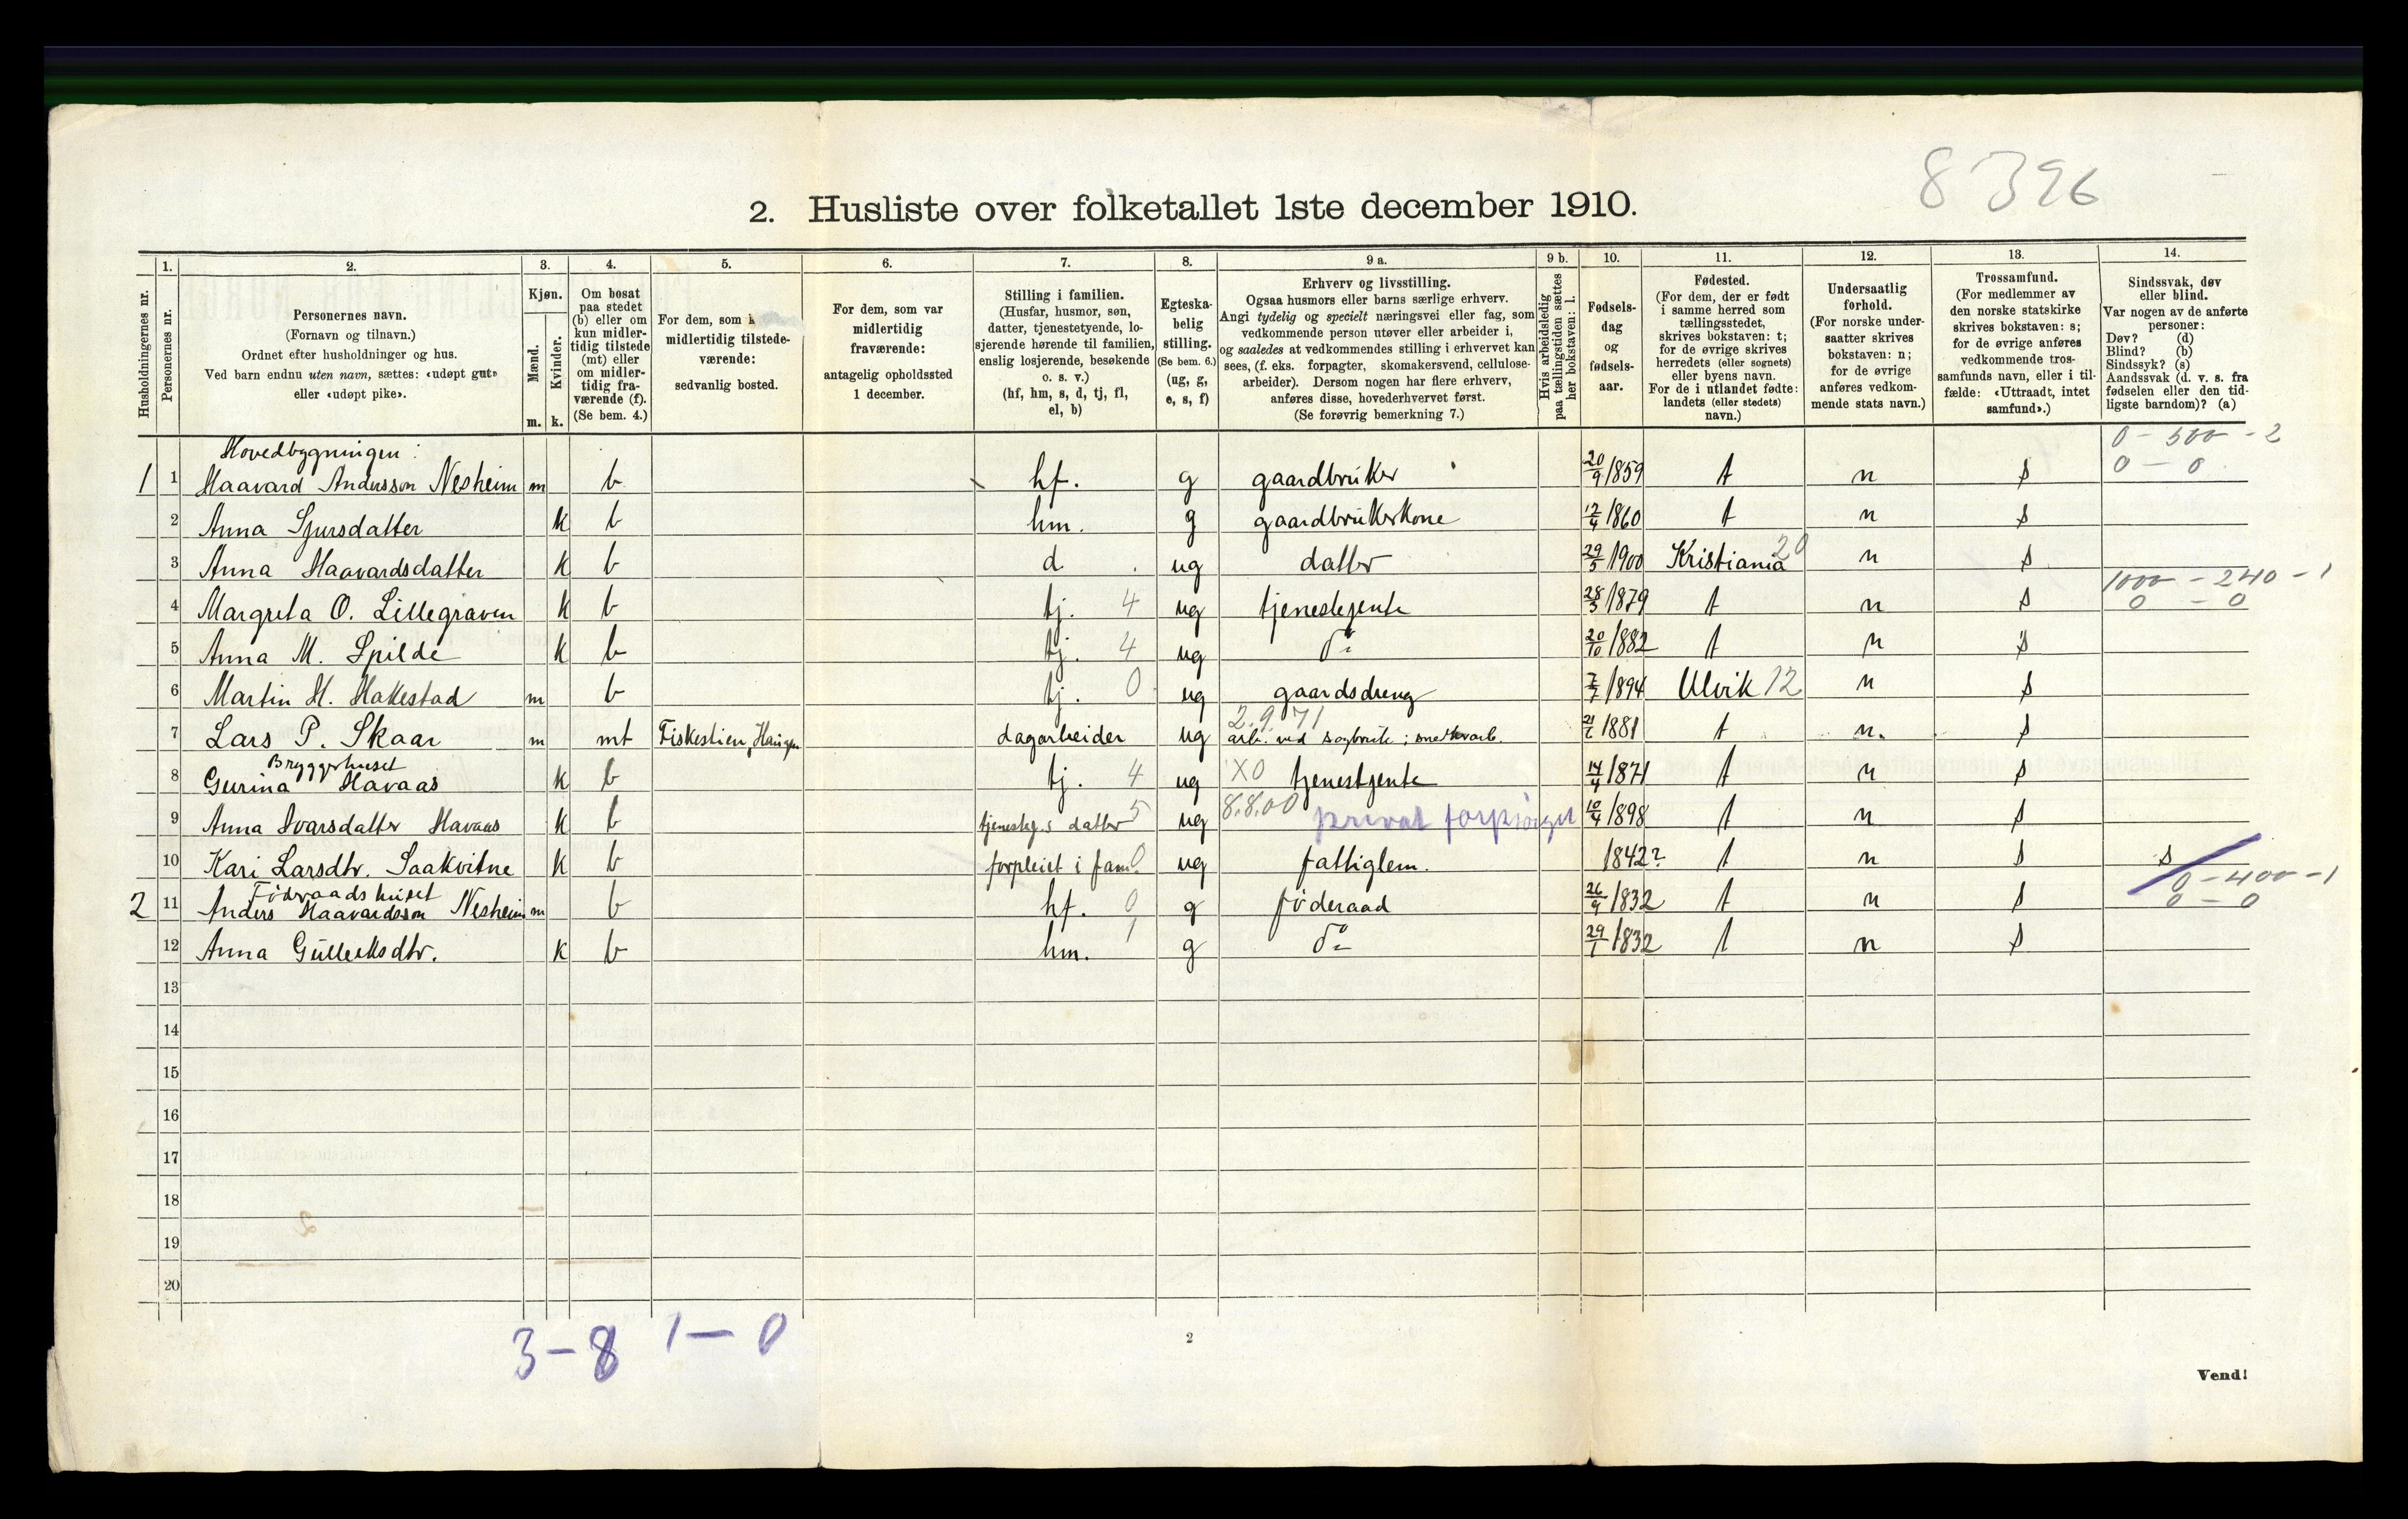 8396
2. Husliste over folketallet 1ste december 1910.
Husholdningernes nr.
1.
Personernes nr.
2.
Personernes navn.
(Fornavn og tilnavn.)
Ordnet efter husholdninger og hus.
Ved barn endnu uten navn, sættes: «udøpt gut»
eller «udøpt pike».
3.
Kjøn.
Mænd.
Kvinder.
m. k.
4.
Om bosat
paa stedet
(b) eller om
kun midler-
tidig tilstede
(mt) eller
om midler-
tidig fra-
værende (f).
(Se bem. 4.)
5.
For dem, som
midlertidig tilstede-
værende:
sedvanlig bosted.
6.
For dem, som var
midlertidig
fraværende:
antagelig opholdssted
1 december.
7.
Stilling i familien.
(Husfar, husmor, søn,
datter, tjenestetyende, lo-
sjerende hørende til familien,
enslig losjerende, besøkende
o. s. v.)
(hf, hm, s, d, tj, fl,
el, b)
8.
Egteska-
belig
stilling.
(Se bem. 6.)
(ug, g,
e, s, f)
9 a.
Erhverv og livsstilling.
Ogsaa husmors eller barns særlige erhverv.
Angi tydelig og specielt næringsvei eller fag, som
vedkommende person utøver eller arbeider i,
og saaledes at vedkommendes stilling i erhvervet kan
sees, (f. eks. forpagter, skomakersvend, cellulose-
arbeider). Dersom nogen har flere erhverv,
anføres disse, hovederhvervet først.
(Se forøvrig bemerkning 7.)
9 b.
Hvis arbeidsledig
paa tællingstiden sættes
her bokstaven: l.
10.
Fødsels-
dag
og
fødsels-
aar.
11.
Fødested.
(For dem, der er født
i samme herred som
tællingsstedet,
skrives bokstaven: t;
for de øvrige skrives
herredets (eller sognets)
eller byens navn.
For de i utlandet fødte:
landets (eller stedets)
navn.)
12.
Undersaatlig
forhold.
(For norske under-
saatter skrives
bokstaven: n;
for de øvrige
anføres vedkom-
mende stats navn.)
13.
Trossamfund.
(For medlemmer av
den norske statskirke
skrives bokstaven: s;
for de øvrige anføres
vedkommende tros-
samfunds navn, eller i til-
fælde: «Uttraadt, intet
samfund».)
14.
Sindssvak, døv
eller blind.
Var nogen av de anførte
personer:
Døv? (d)
Blind? (b)
Sindssyk? (s)
Aandssvak (d. v. s. fra
fødselen eller den tid-
ligste barndom)? (a)
Hovedbygningen: 0 - 500 - 2
1 1 Haavard Andersson Nesheim m b hf. g gaardbruker 20/9 1859 t n s 0 - 0
2 Anna Sjursdatter k b hm. g gaardbrukerkone 17/4 1860 t n s
3 Anna Haavardsdatter k b d. ug datter 29/5 1900 Kristiania 20 n s
1000 - 240 - 1
4 Margreta O. Lillegraven k b tj. 4 ug tjenestejente 28/3 1879 t n s 0 - 0
5 Anna M. Spilde k b tj. 4 ug do 20/10 1882 t n s
6 Martin H. Hakestad m b tj. 0 ug gaardsdreng 7/7 1894 Ulvik 12 n s
2.9.71
7 Lars P. Skaar m mt Fiskestien, Haugen dagarbeider ug arb. ved sagbruk; snedkerarb. 1881 t n. s
Bryggerhuset
8 Gurina Havaas k b tj. 4 ug X0 tjenestjente 14/4 1871 t n s
9 Anna Ivarsdatter Havaas k b tjenestej.s datter 5 ug 8.8.00 privat forpsørget 10/4 1898 t n s
10 Kari Larsdtr. Saakvitne k b forpleiet i fam. 0 ug fattiglem. 1842? t n s s
Føderaadshuset 0 - 400 - 1
2 11 Anders Haavardsson Nesheim m b hf. 0 g føderaad 26/9 1832 t n s 0 - 0
12 Anna Gullecksdtr. k b hm. 1 g do 29/1 1832 t n s
13
14
15
16
17
18
19
20
3 - 8 1 - 0
2
Vend!